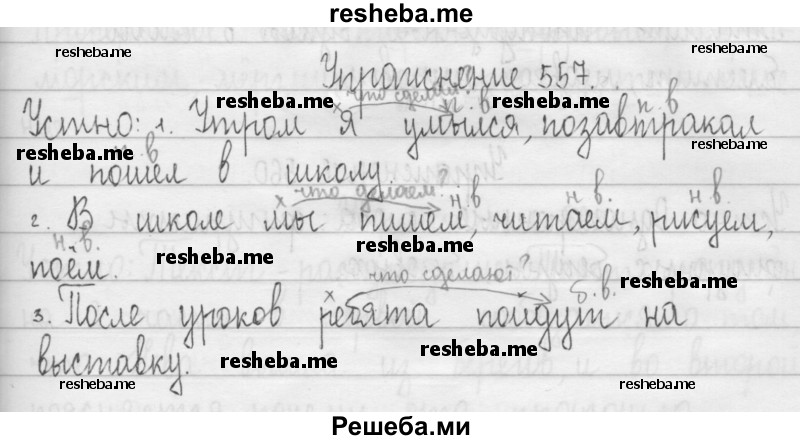 resheba.me
resheba.me resheba.me
Упражнение 557.
что сделал?
resheba.me resheba.me
х п. в п. в
Устно: 1. Утром я умылся, позавтракал
resheba.me resheba.me resheba.me
п. в
и пошёл в школу.
что делаем?
х н. в н. в. н. в.
2. В школе мы пишем, читаем, рисуем,
resheba.me resheba.me
н. в.
поём.
что сделают?
resheba.me
х б. в.
3. После уроков ребята пойдут на
выставку.
resheba.me resheba.me
resheba.me resheba.me
Решеба.ми